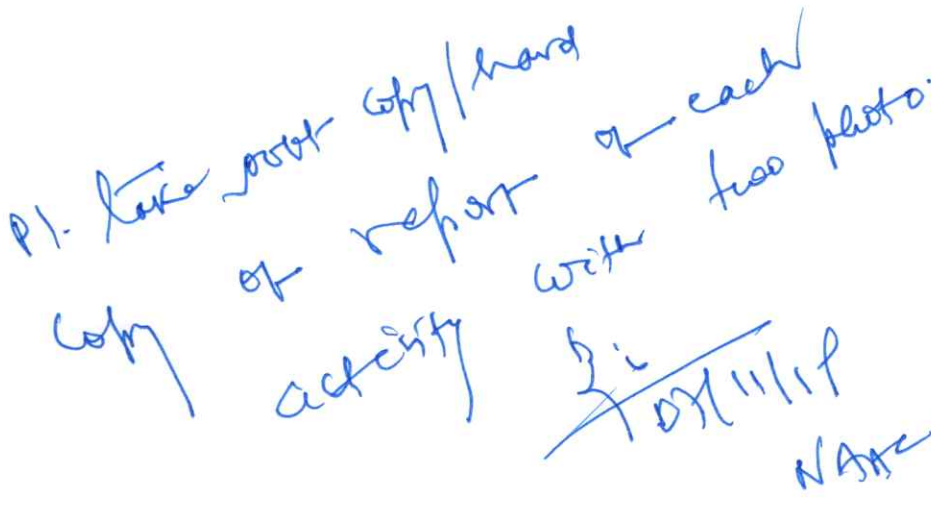 Pl. take soft copy/hard
copy of report of each
activity with two photo.
07/11/19
NAAC